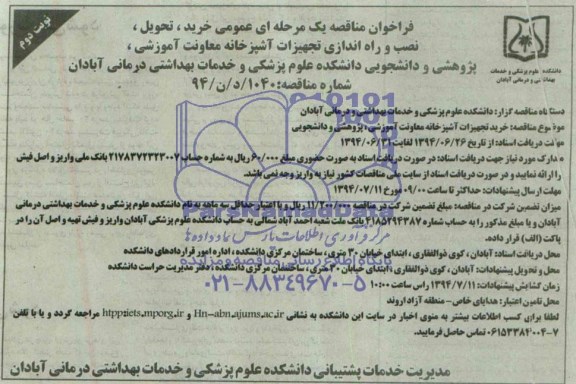 نوبت دوم
فراخوان مناقصه یک مرحله ای عمومی خرید ، تحویل ،
نصب و راه اندازی تجهیزات آشپزخانه معاونت آموزشی ،
پژوهشی و دانشجویی دانشکده علوم پزشکی و خدمات بهداشتی درمانی آبادان
شماره مناقصه: ۱۰۴۰/د/ن/۹۴
دانشکده علوم پزشکی و خدمات
بهداشتی و درمانی آبادان
دستگاه مناقصه گزار: دانشکده علوم پزشکی و خدمات بهداشتی و درمانی آبادان
موضوع مناقصه: خرید تجهیزات آشپزخانه معاونت آموزشی، پژوهشی و دانشجویی
مهلت دریافت اسناد: از تاریخ ۱۳۹۴/۰۶/۲۶ لغایت ۱۳۹۴/۰۶/۳۱
مدارک مورد نیاز جهت دریافت اسناد: در صورت دریافت اسناد به صورت حضوری مبلغ ۶۰/۰۰۰ ریال به شماره حساب ۲۱۷۸۳۷۲۳۲۳۰۰۷ بانک ملی واریز و اصل فیش
را ارائه نمایید و در صورت دریافت اسناد از سایت ملی مناقصات کشور نیاز به واریز وجه نمی باشد.
مهلت ارسال پیشنهادات: حداکثر تا ساعت ۰۹/۰۰ مورخ ۱۳۹۴/۰۷/۱۱
میزان تضمین شرکت در مناقصه: مبلغ تضمین شرکت در مناقصه ۱۱/۲۰۰/۰۰۰ ریال و با اعتبار حداقل سه ماهه به نام دانشکده علوم پزشکی و خدمات بهداشتی درمانی
آبادان و یا مبلغ مذکور را به حساب شماره بانک ملت شعبه احمد آباد شمالی به حساب دانشکده علوم پزشکی آبادان واریز و فیش تهیه و اصل آن را در
پاکت (الف) قرار داده.
محل دریافت اسناد: آبادان ، کوی ذوالفقاری ، ابتدای خیابان ۳۰ متری ، ساختمان مرکزی دانشکده ، اداره امور قراردادهای دانشکده
محل و تحویل پیشنهادات: آبادان ، کوی ذوالفقاری ، ابتدای خیابان ۳۰ متری ، ساختمان مرکزی دانشکده ، دفتر مدیریت حراست دانشکده
زمان گشایش پیشنهادات: ۱۳۹۴/۷/۱۱ راس ساعت ۱۰:۰۰
محل تامین اعتبار: هدایای خاص- منطقه آزاد اروند
لطفا برای کسب اطلاعات بیشتر به منوی اخبار در سایت این دانشکده به نشانی Hn-abn.ajums.ac.ir و httpp:iets.mporg.ir مراجعه گردد و یا با تلفن
۰۶۱۵۳۳۸۴۰۰۴-۷ تماس حاصل فرمایید.
مدیریت خدمات پشتیبانی دانشکده علوم پزشکی و خدمات بهداشتی درمانی آبادان
مرکز فرآوری اطلاعات پارس نماد داده ها
پایگاه اطلاع رسانی مناقصه و مزایده
۰۲۱-۸۸۳۴۹۶۷۰-۵